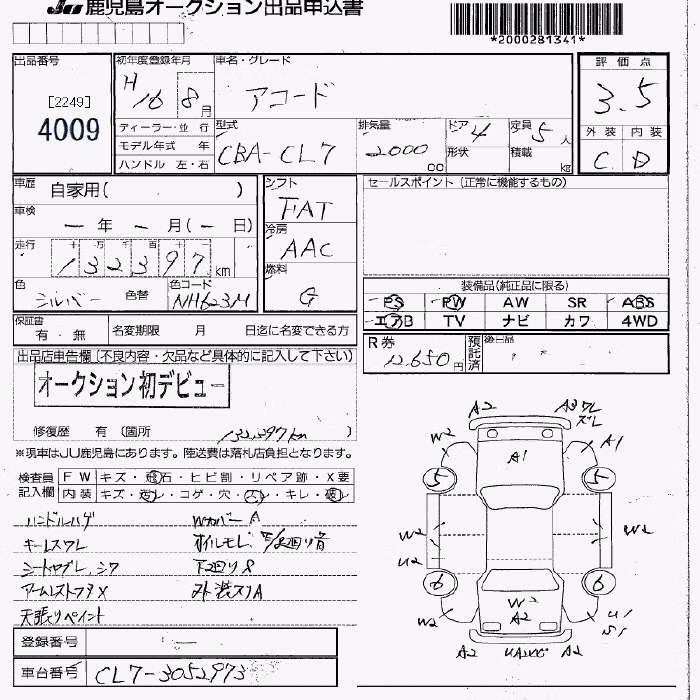 JU 鹿児島オークション出品申込書
*2000281341*
出品番号 初年度登録年月 車名・グレード 評価点
[2249]
4009
H16 8月 アコード 3.5
ディーラー・並行 型式 排気量 ドア 4 定員 5人 外装 内装
モデル年式 年 CBA-CL7 2000cc 形状 積載 kg C D
ハンドル 左・右
車歴 自家用( ) シフト FAT セールスポイント (正常に機能するもの)
車検 ー年 ー月(ー日) 冷房 AAC
走行 十万千百十 132397km 燃料 G
色 シルバー 色替 色コード NH623M
装備品(純正品に限る)
PS PW AW SR ABS
エアB TV ナビ カワ 4WD
保証書 有・無 名変期限 月 日迄に名変できる方
R券 12,650円 預託済 後日品
出品店申告欄 [不良内容・欠品など具体的に記入して下さい]
オークション初デビュー
修復歴 有 (箇所 132397km )
※現車はJU鹿児島にあります。陸送費は落札店負担となります。
検査員記入欄 FW キズ・飛石・ヒビ割・リペア跡・X要
内装 キズ・汚レ・コゲ・穴・スレ・キレ・破レ
ハンドルハゲ Wカバー A
キーレスワレ オイルモレ 下廻り音
シートヤブレ、シワ 下廻りS
アームレストフタX 外 渋スリA
天張りペイント
登録番号 ー
車台番号 CL7-3052973
A2 A3 ワレ ズレ
W2 A1 A1
5 5
W2 W2
U2
6 6
W2 W2 A2 U1 S1
A2 A2